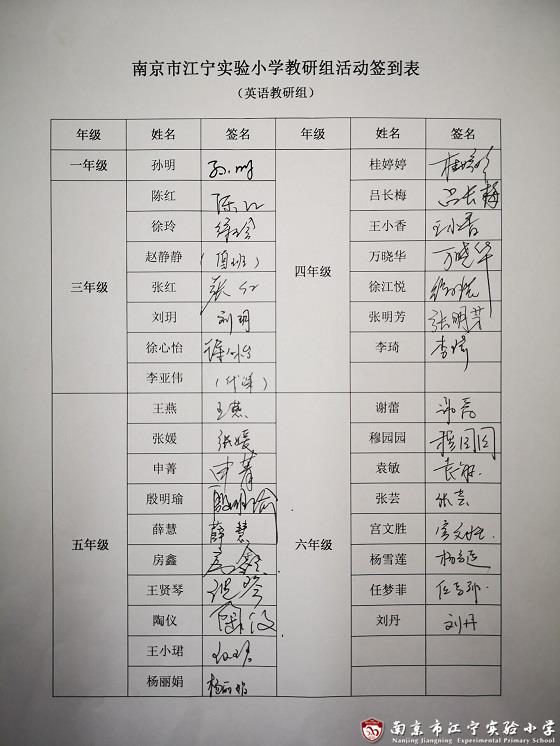 南京市江宁实验小学教研组活动签到表
（英语教研组）
年级 姓名 签名 年级 姓名 签名
一年级 孙明 孙明 四年级 桂婷婷 桂婷婷
三年级 陈红 陈红 吕长梅 吕长梅
徐玲 徐玲 王小香 王小香
赵静静 （值班） 万晓华 万晓华
张红 张红 徐江悦 徐江悦
刘玥 刘玥 张明芳 张明芳
徐心怡 徐心怡 李琦 李琦
李亚伟
五年级 王燕 王燕 六年级 谢蕾
张媛 张媛 穆园园 穆园园
申菁 申菁 袁敏 袁敏
殷明瑜 殷明瑜 张芸 张芸
薛慧 薛慧 宫文胜 宫文胜
房鑫 房鑫 杨雪莲 杨雪莲
王贤琴 任梦菲
陶仪 陶仪 刘丹 刘丹
王小珺
杨丽娟 杨丽娟
南京市江宁实验小学
Nanjing Jiangning Experimental Primary School